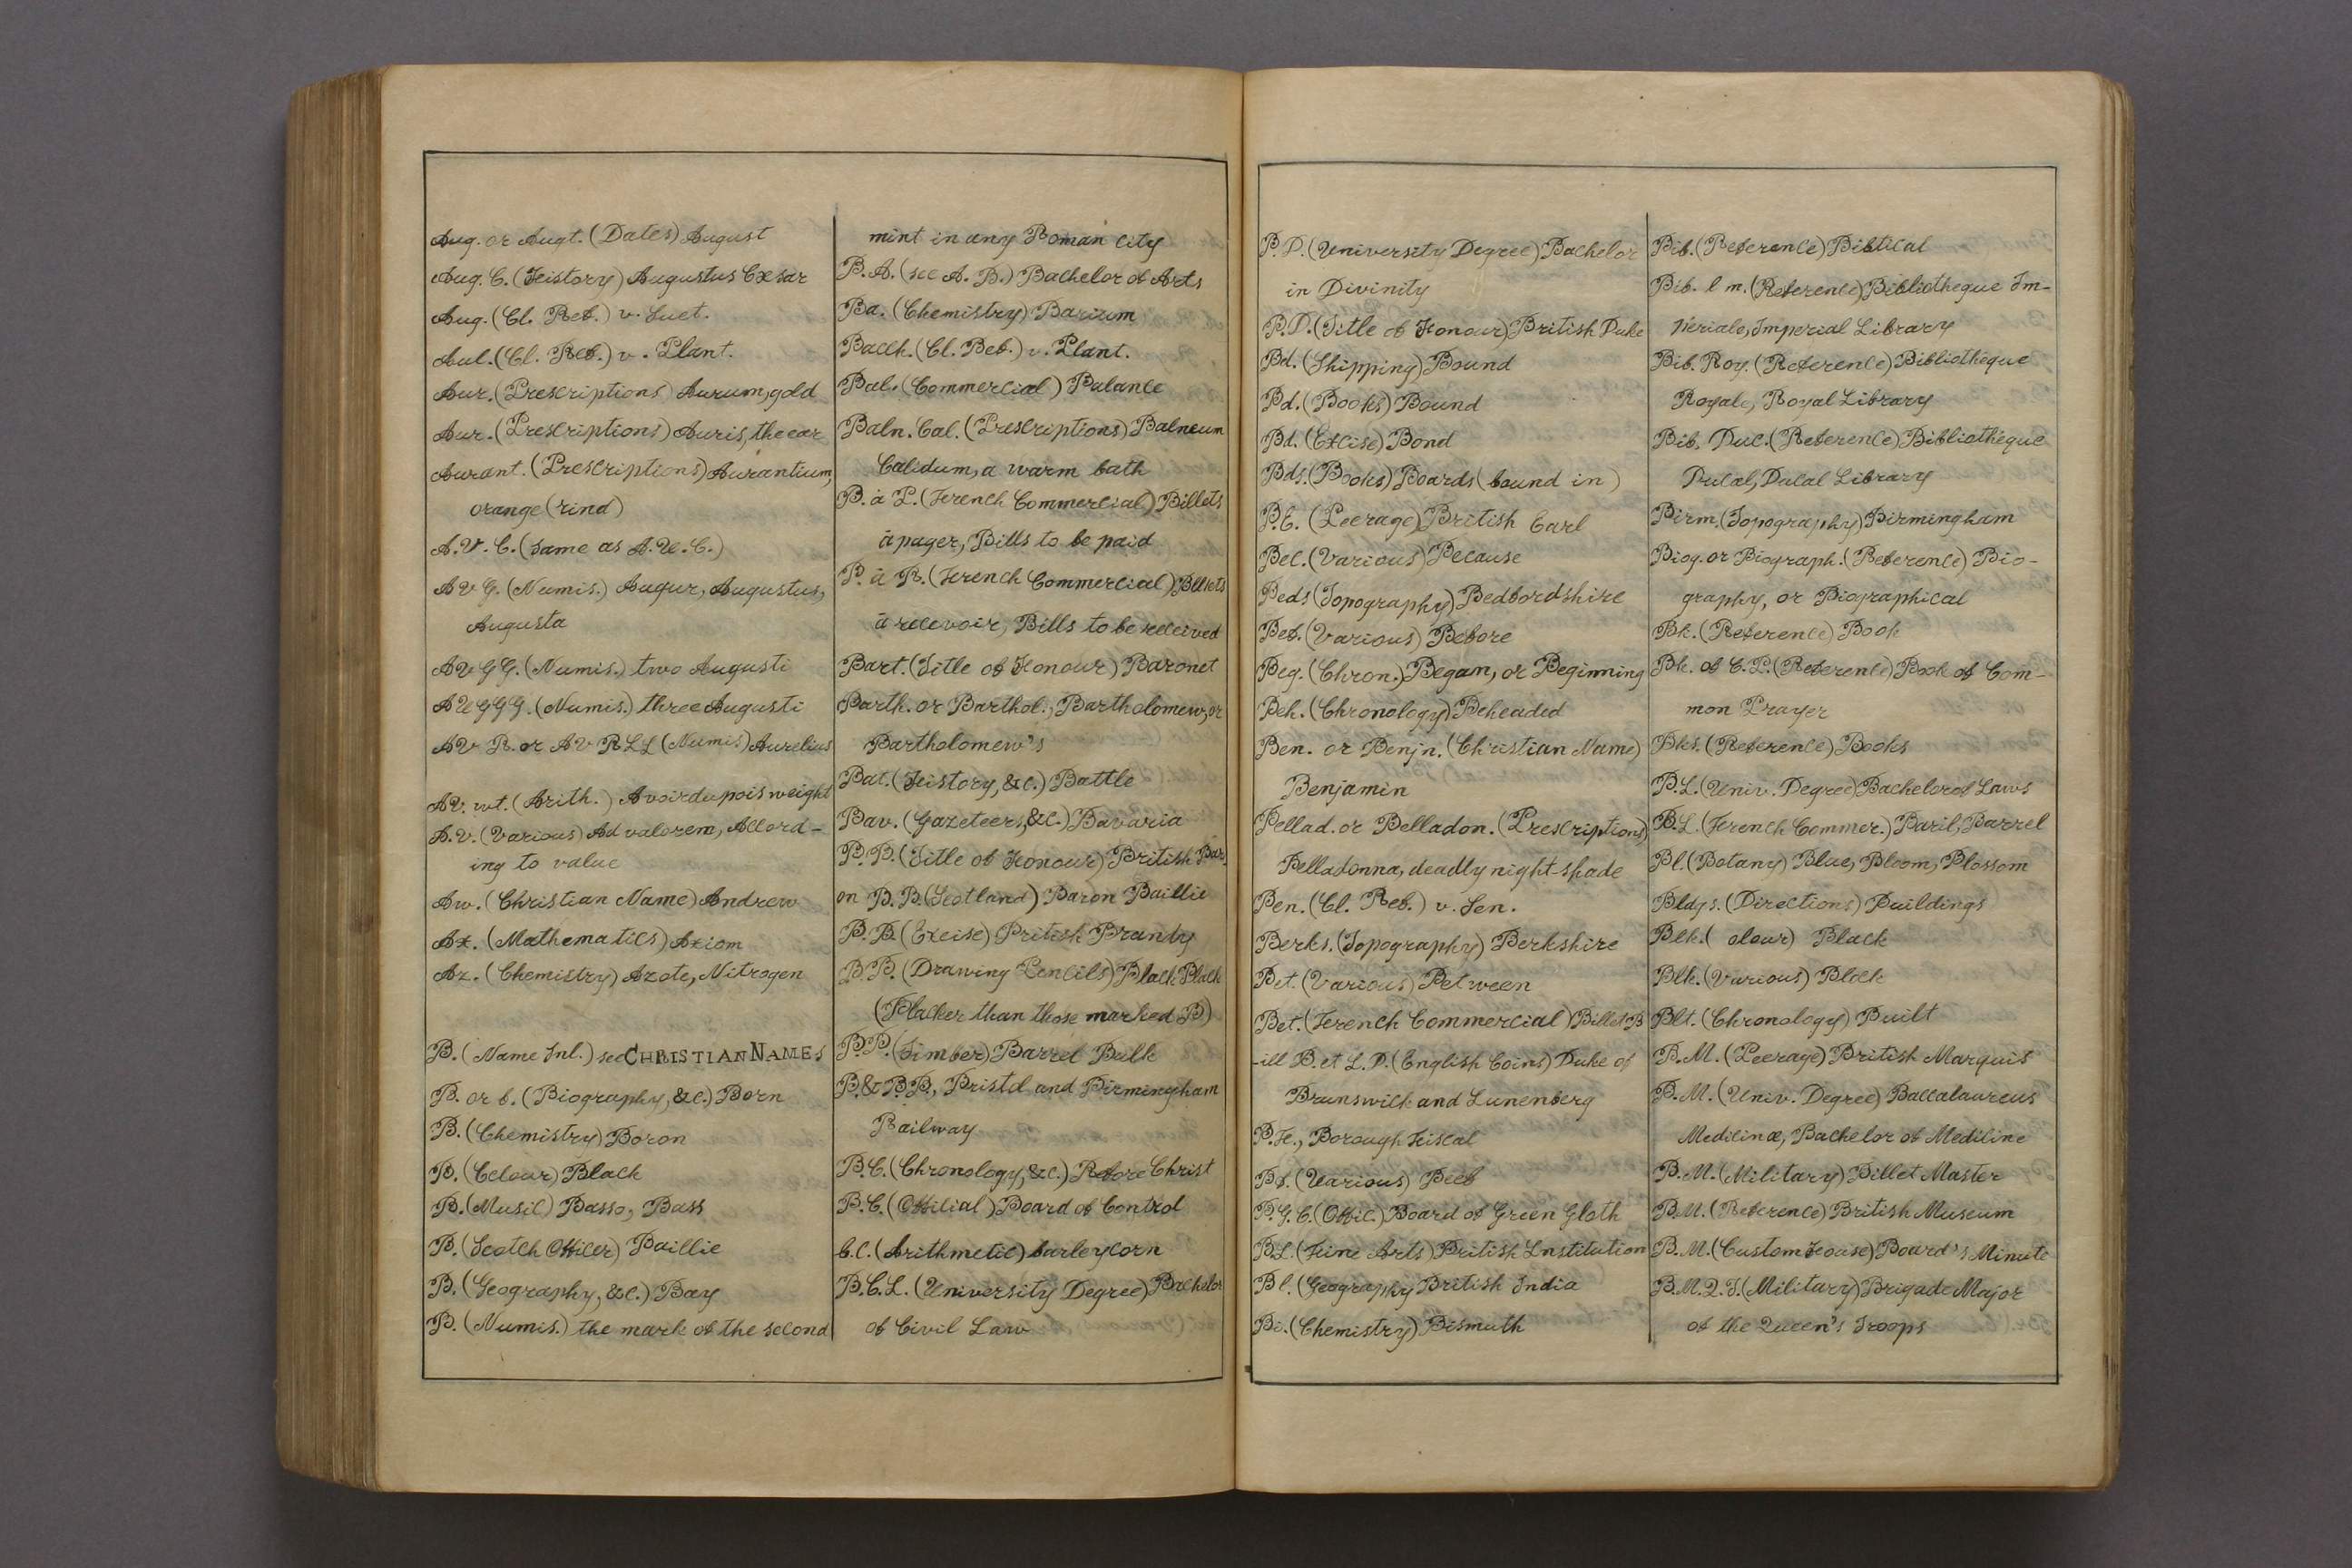 Aug. or Augt. (Dates) August
Aug. C. (History) Augustus Cæsar
Aug. (Cl. Ref.) v. Suet.
Aul. (Cl. Ref.) v. Plant.
Aur. (Prescriptions) Aurum, gold
Aur. (Prescriptions) Auris, the ear
Aurant. (Prescriptions) Aurantium,
orange (rind)
A.V.C. (same as A.U.C.)
AVG. (Numis.) Augur, Augustus,
Augusta
AVGG. (Numis.) two Augusti
AUGGG. (Numis.) three Augusti
AVR. or AVRLL (Numis) Aurelius
AV. wt. (Arith.) Avoirdupois weight
A.V. (Various) Ad valorem, Accord-
ing to value
Aw. (Christian Name) Andrew
Ax. (Mathematics) Axiom
Az. (Chemistry) Azote, Nitrogen
B. (Name Inl.) see CHRISTIAN NAMES
B. or b. (Biography, &c.) Born
B. (Chemistry) Boron
B. (Colour) Black
B. (Music) Basso, Bass
B. (Scotch Officer) Baillie
B. (Geography, &c.) Bay
B. (Numis.) the mark of the second
mint in any Roman city
B.A. (see A.B.) Bachelor of Arts
Ba. (Chemistry) Barium
Bacch. (Cl. Ref.) v. Plant.
Bal. (Commercial) Balance
Baln. Cal. (Prescriptions) Balneum
Calidum, a warm bath
B. à P. (French Commercial) Billets
à payer, Bills to be paid
B. à R. (French Commercial) Billets
à recevoir, Bills to be received
Bart. (Title of Honour) Baronet
Barth. or Barthol., Bartholomew, or
Bartholomew's
Bat. (History, &c.) Battle
Bav. (Gazeteers, &c.) Bavaria
B.B. (Title of Honour) British Bar-
on B.B. (Scotland) Baron Baillie
B.B. (Excise) British Brandy
B.B. (Drawing Pencils) Black Black
(Blacker than those marked B)
B.B. (Timber) Barrel Bulk
B. & B.B., Bristol and Birmingham
Railway
B.C. (Chronology, &c.) Before Christ
B.C. (Official) Board of Control
b.c. (Arithmetic) barleycorn
B.C.L. (University Degree) Bachelor
of Civil Law
B.D. (University Degree) Bachelor
in Divinity
B.D. (Title of Honour) British Duke
Bd. (Shipping) Bound
Bd. (Books) Bound
Bd. (Excise) Bond
Bds. (Books) Boards (bound in)
B.E. (Peerage) British Earl
Bec. (Various) Because
Beds (Topography) Bedfordshire
Bef. (Various) Before
Beg. (Chron.) Began, or Beginning
Beh. (Chronology) Beheaded
Ben. or Benjn. (Christian Name)
Benjamin
Bellad. or Belladon. (Prescriptions)
Belladonna, deadly night-shade
Ben. (Cl. Ref.) v. Sen.
Berks. (Topography) Berkshire
Bet. (Various) Between
Bet. (French Commercial) Billet B
-ill B. et L. D. (English Coins) Duke of
Brunswick and Lunenberg
B.F., Borough Fiscal
Bf. (Various) Beef
B.G.C. (Offic.) Board of Green Gloth
B.I. (Fine Arts) British Institution
B I. (Geography British India
Bi. (Chemistry) Bismuth
Bib. (Reference) Biblical
Bib. I m. (Reference) Bibliotheque Im-
periale, Imperial Library
Bib. Roy. (Reference) Bibliothèque
Royale, Royal Library
Bib. Duc. (Reference) Bibliothèque
Ducal, Ducal Library
Birm. (Topography) Birmingham
Biog. or Biograph. (Reference) Bio-
graphy, or Biographical
Bk. (Reference) Book
Bk. of C.P. (Reference) Book of Com-
mon Prayer
Bks. (Reference) Books
B.L. (Univ. Degree) Bachelor of Laws
B.L. (French Commer.) Baril, Barrel
Bl. (Botany) Blue, Bloom, Blossom
Bldgs. (Directions) Buildings
Blk. ( olour) Black
Blk. (Various) Block
Blt. (Chronology) Built
B.M. (Peerage) British Marquis
B.M. (Univ. Degree) Baccalaureus
Medicinæ, Bachelor of Medicine
B.M. (Military) Billet Master
B.M. (Reference) British Museum
B.M. (Custom House) Board's Minute
B.M.Q.T. (Military) Brigade Major
of the Queen's Troops